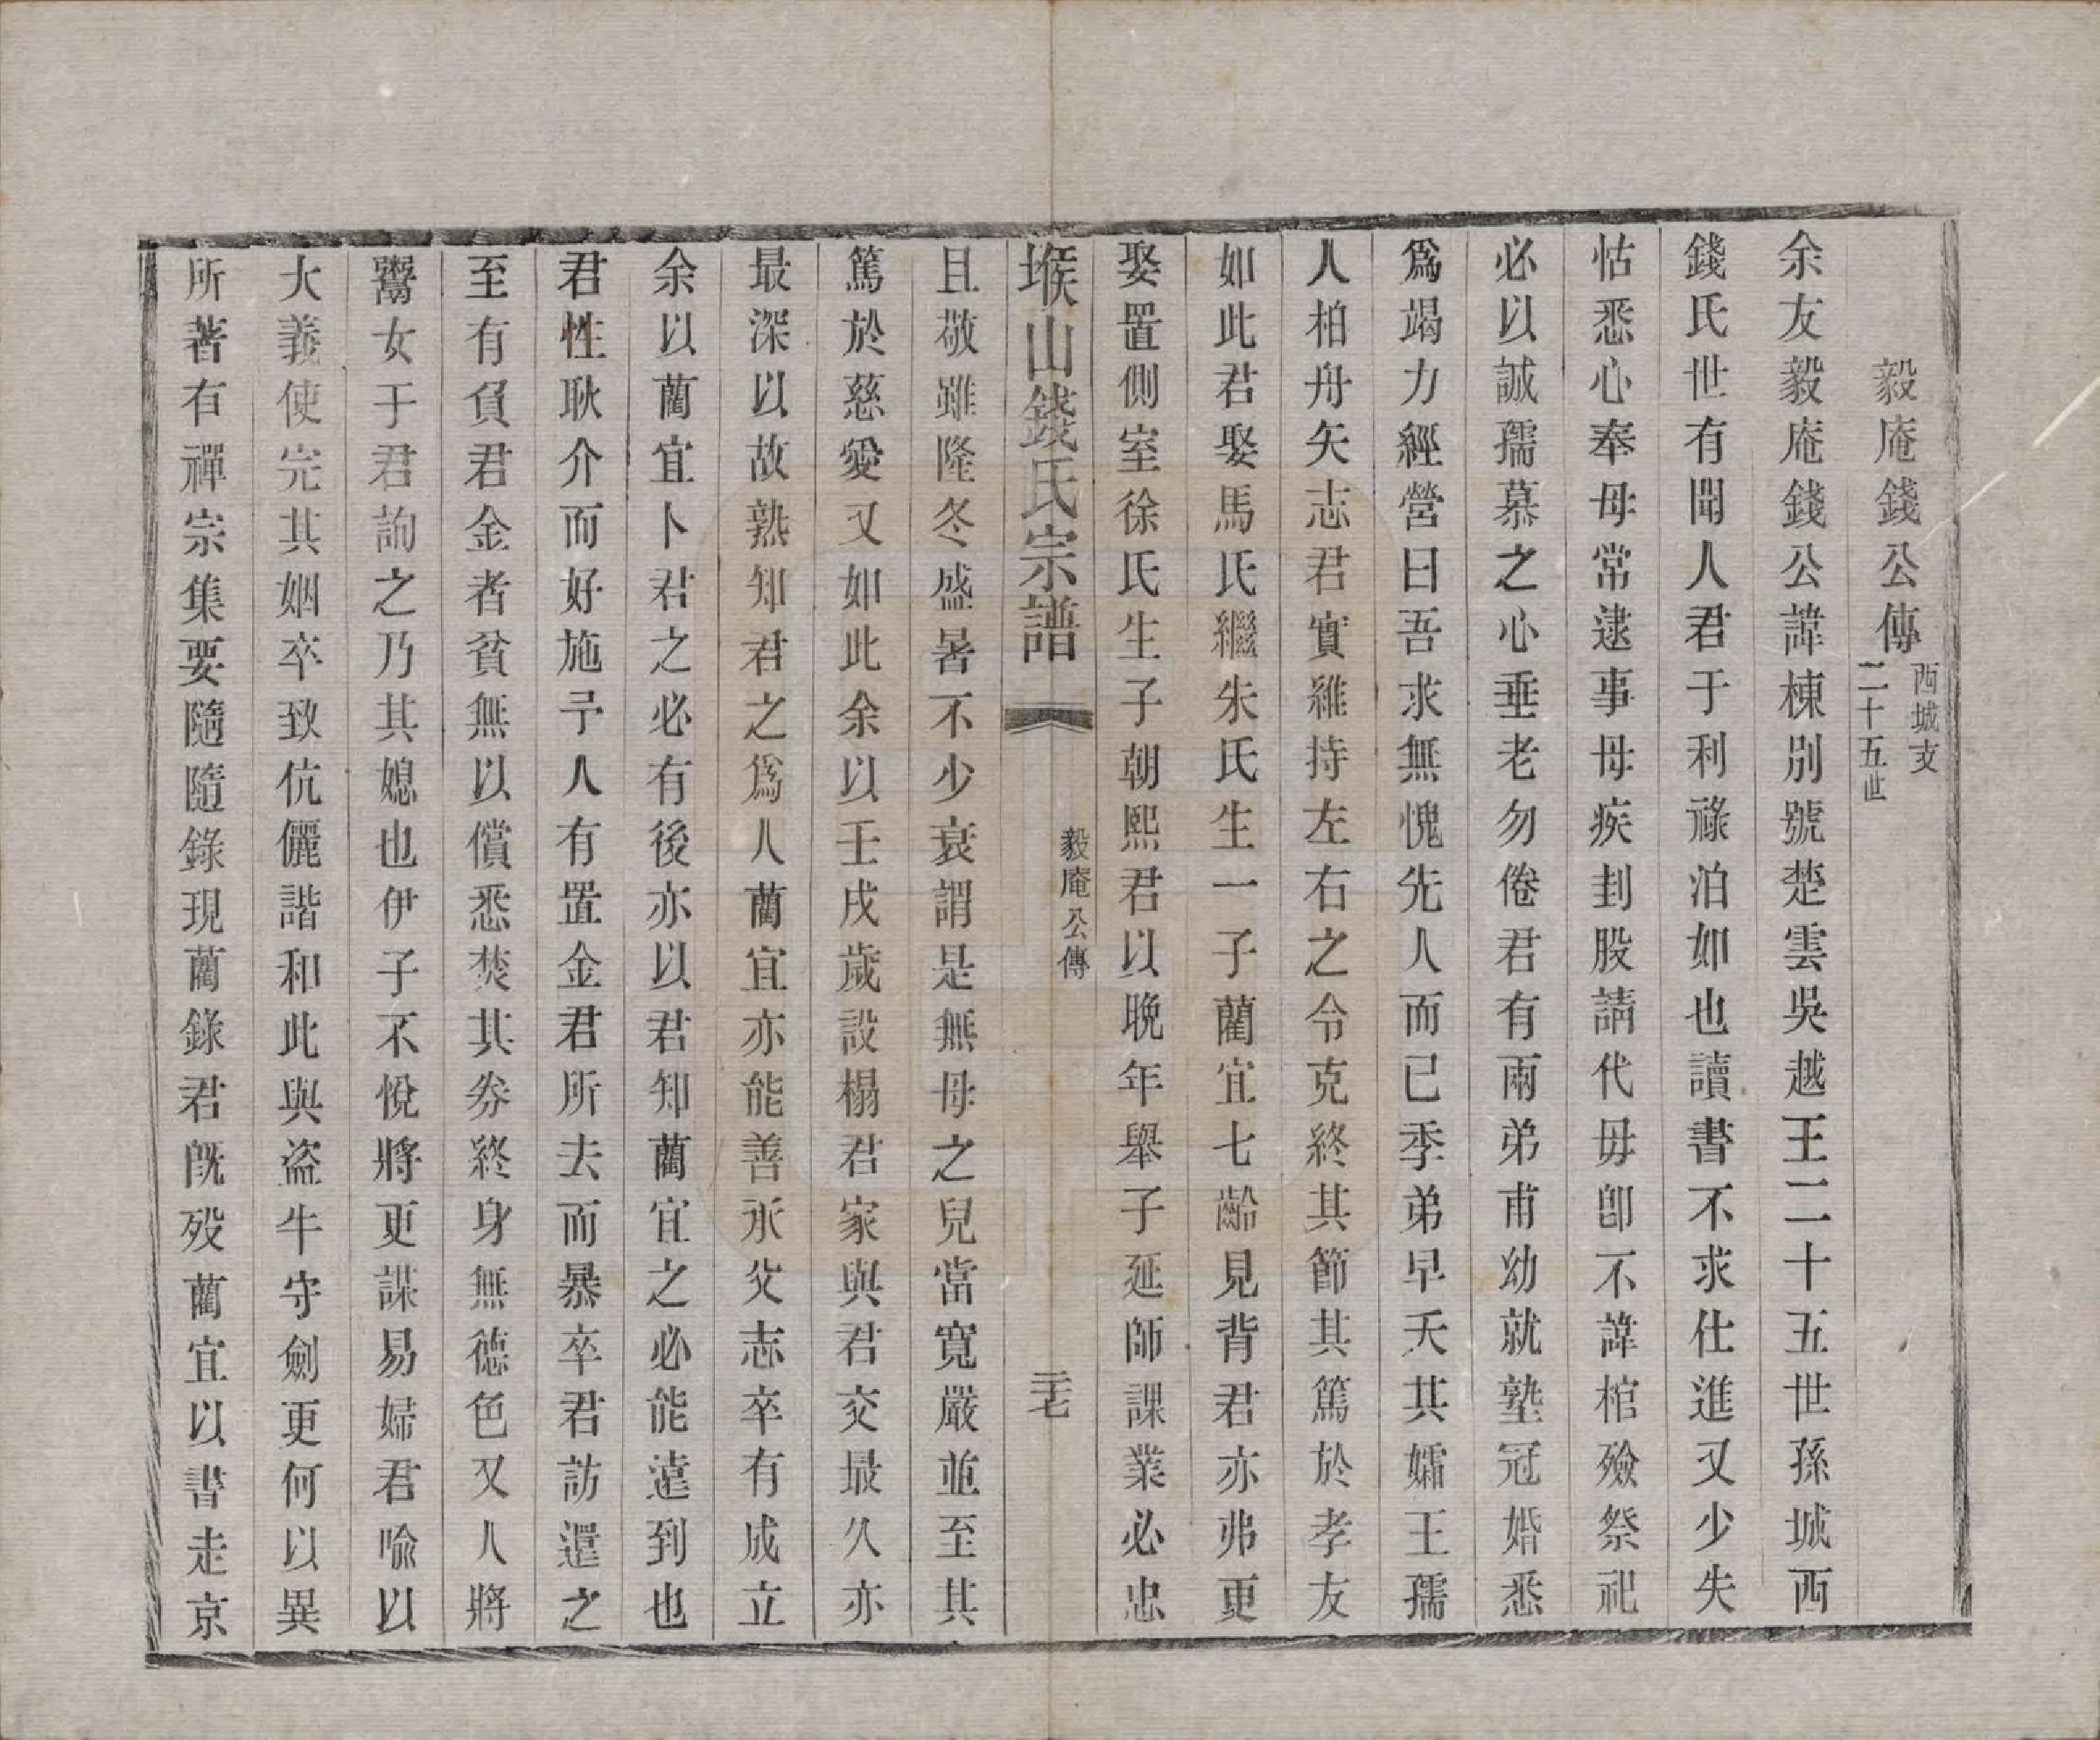 毅庵錢公傳 西城支二十五世
余友毅庵錢公諱棟別號楚雲吳越王二十五世孫城西
錢氏世有聞人君于利祿泊如也讀書不求仕進又少失
怙悉心奉母常逮事母疾刲股請代毋卽不諱棺殮祭祀
必以誠孺慕之心垂老勿倦君有兩弟甫幼就塾冠婚悉
爲竭力經營曰吾求無愧先人而已季弟早夭其孀王孺
人柏舟矢志君實維持左右之令克終其節其篤於孝友
如此君娶馬氏繼朱氏生一子藺宜七齡見背君亦弗更
娶置側室徐氏生子朝熙君以晚年舉子延師課業必忠
堠山錢氏宗譜 毅庵公傳 三七
且敬雖隆冬盛暑不少衰謂是無母之兒當寬嚴並至其
篤於慈愛又如此余以壬戌歲設榻君家與君交最久亦
最深以故熟知君之爲人藺宜亦能善承父志卒有成立
余以藺宜卜君之必有後亦以君知藺宜之必能遠到也
君性耿介而好施予人有置金君所去而暴卒君訪還之
至有負君金者貧無以償悉焚其券終身無德色又人將
鬻女于君詢之乃其媳也伊子不悅將更謀易婦君喻以
大義使完其姻卒致伉儷諧和此與盜牛守劍更何以異
所著有禪宗集要隨隨錄現藺錄君旣歿藺宜以書走京